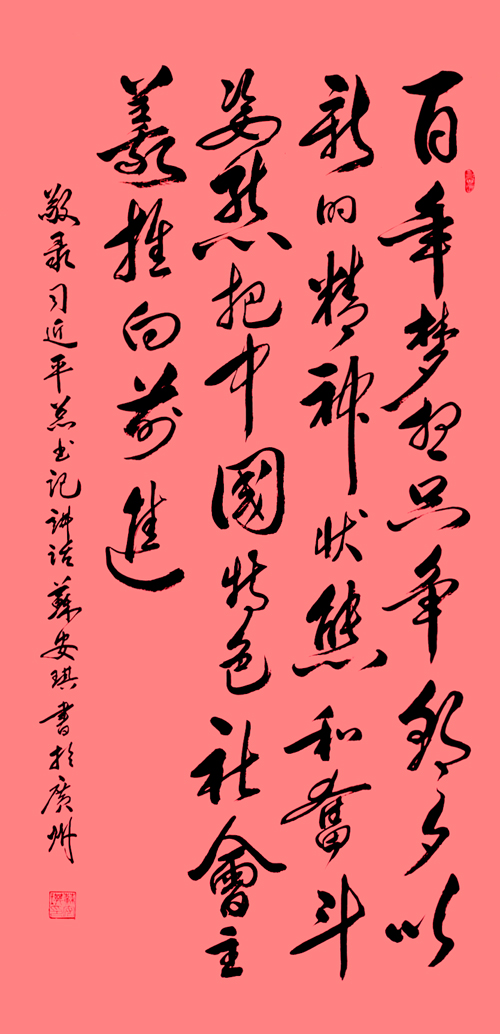 百年梦想只争朝夕以
新的精神状態和奮斗
姿態把中國特色社會主
義推向前進
敬录习近平总书记讲话蘇安琪書於廣州